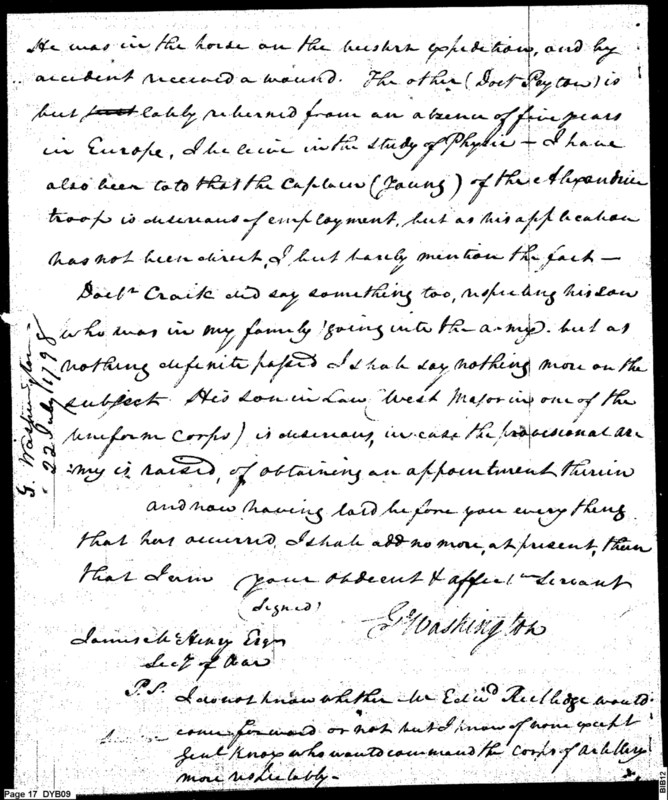 He was in the horse on the western expedition, and by
accident received a wound. The other (Doctr Peyton) is
but lately returned from an absence of five years
in Europe, I believe in the study of Physic — I have
also been told that the Captain (Young) of the Alexandria
troop is desirous of employment, but as his application
has not been direct, I but barely mention the fact —
Doctr Craik did say something too, respecting his son
who was in my family going into the army. but as
nothing definite passed I shall say nothing more on the
subject. His son in Law (West Major in one of the
uniform corps) is desirous, in case the provisional ar
:my is raised, of obtaining an appointment therein
and now having laid before you every thing
that has occurred I shall add no more, at present, than
that I am your obedient & affect Servant
(signed)
G. Washington
James McHenry Esqr
Secy of War
P.S. I do not know whether Mr Edwd Rutledge would
come forward or not but I know of none except
Genl Knox who would command the Corps of Artillery
more respectably —
G. Washington
22 July 1798
Page 17 DYB09
B1B12